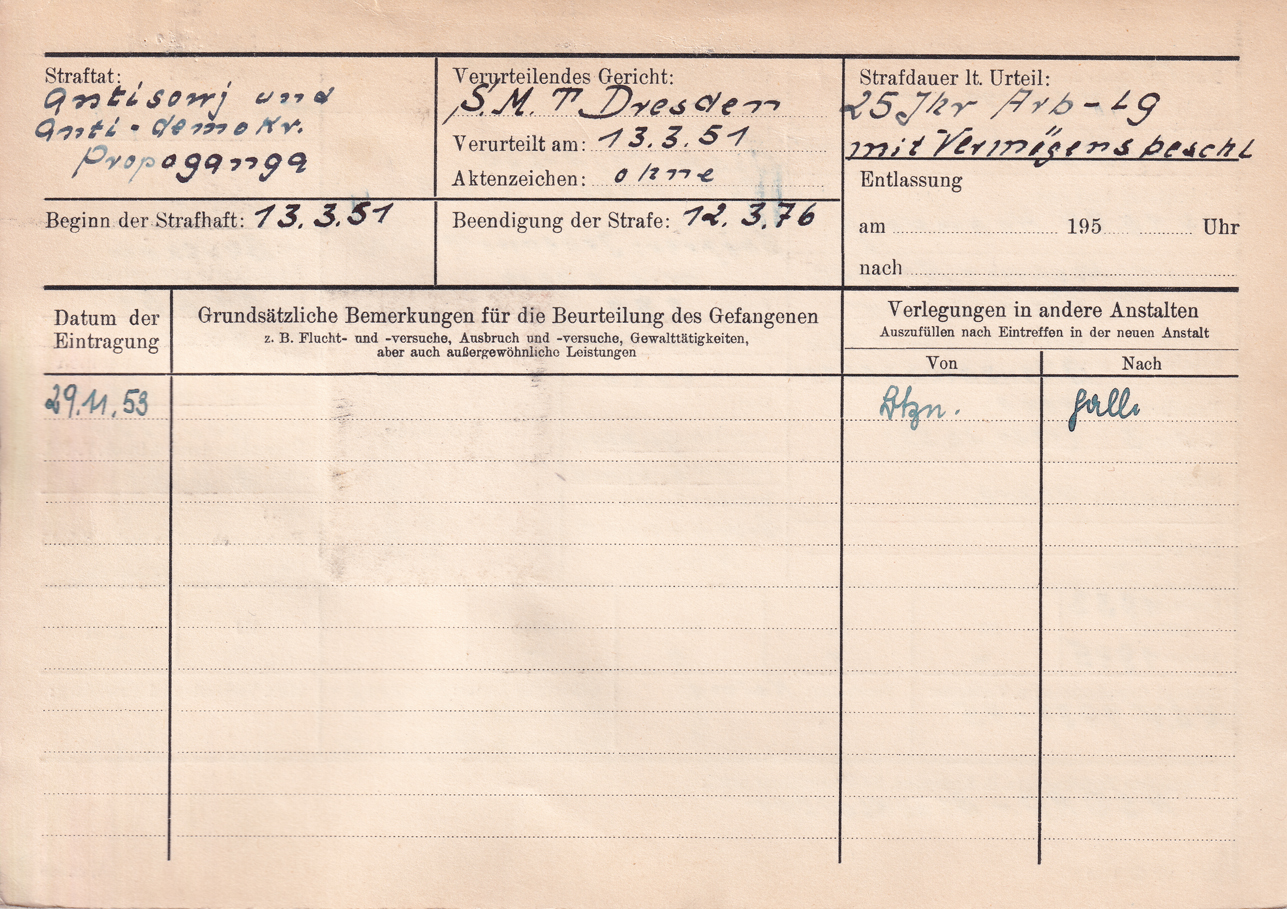 Straftat:
Antisowj und
anti-demokr.
Propaganga
Verurteilendes Gericht:
S.M.T Dresden
Verurteilt am: 13.3.51
Aktenzeichen: ohne
Strafdauer lt. Urteil:
25 Jhr Arb-Lg
mit Vermögensbeschl
Entlassung
am 195 Uhr
nach
Beginn der Strafhaft: 13.3.51
Beendigung der Strafe: 12.3.76
Datum der
Eintragung
Grundsätzliche Bemerkungen für die Beurteilung des Gefangenen
z. B. Flucht- und -versuche, Ausbruch und -versuche, Gewalttätigkeiten,
aber auch außergewöhnliche Leistungen
Verlegungen in andere Anstalten
Auszufüllen nach Eintreffen in der neuen Anstalt
Von Nach
29.11.53 Btzn. Halle